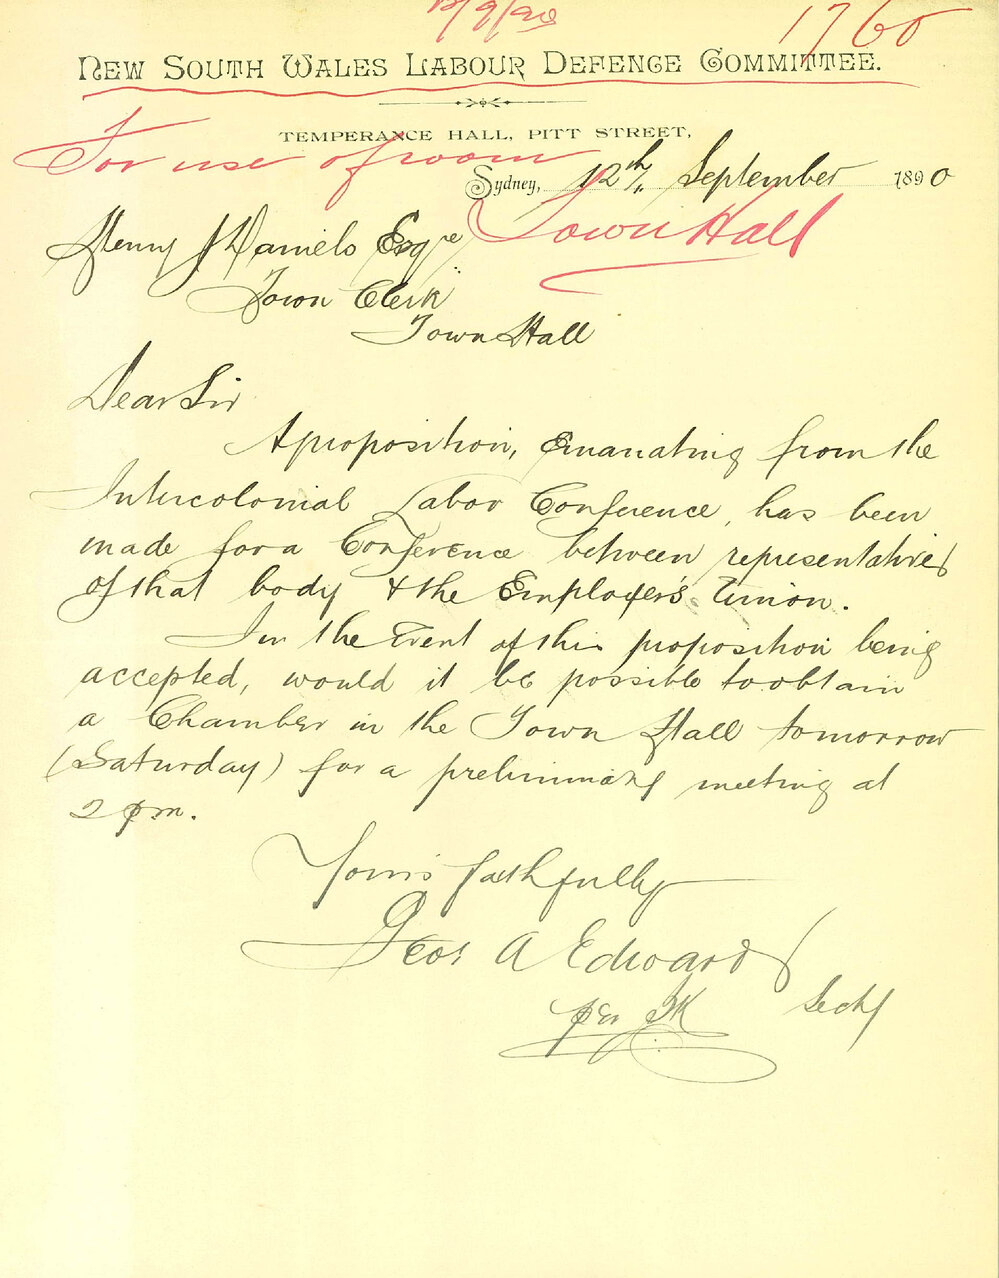 12/9/90
1760
NEW SOUTH WALES LABOUR DEFENCE COMMITTEE.
TEMPERANCE HALL, PITT STREET,
For use of room
Sydney, 12th September 1890
Town Hall
Henry J Daniels Esqre
Town Clerk
Town Hall
Dear Sir
A proposition, emanating from the
Intercolonial Labor Conference, has been
made for a Conference between representatives
of that body & the Employer's Union.
In the event of this proposition being
accepted, would it be possible to obtain
a Chamber in the Town Hall tomorrow
(Saturday) for a preliminary meeting at
2 pm.
Yours faithfully
Geo. A Edwards
Secty
per JK